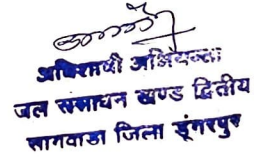 अधिशाषी अभियन्ता
जल संसाधन खण्ड द्वितीय
सागवाडा जिला डूंगरपुर